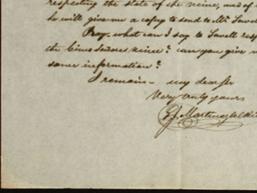 respecting the state of the mine, and of
he will give me a copy to send to Mr. Sewell
Pray, what can I say to Sewell
the since? can you give
some information?
I remain my dear Sir
Very truly yours